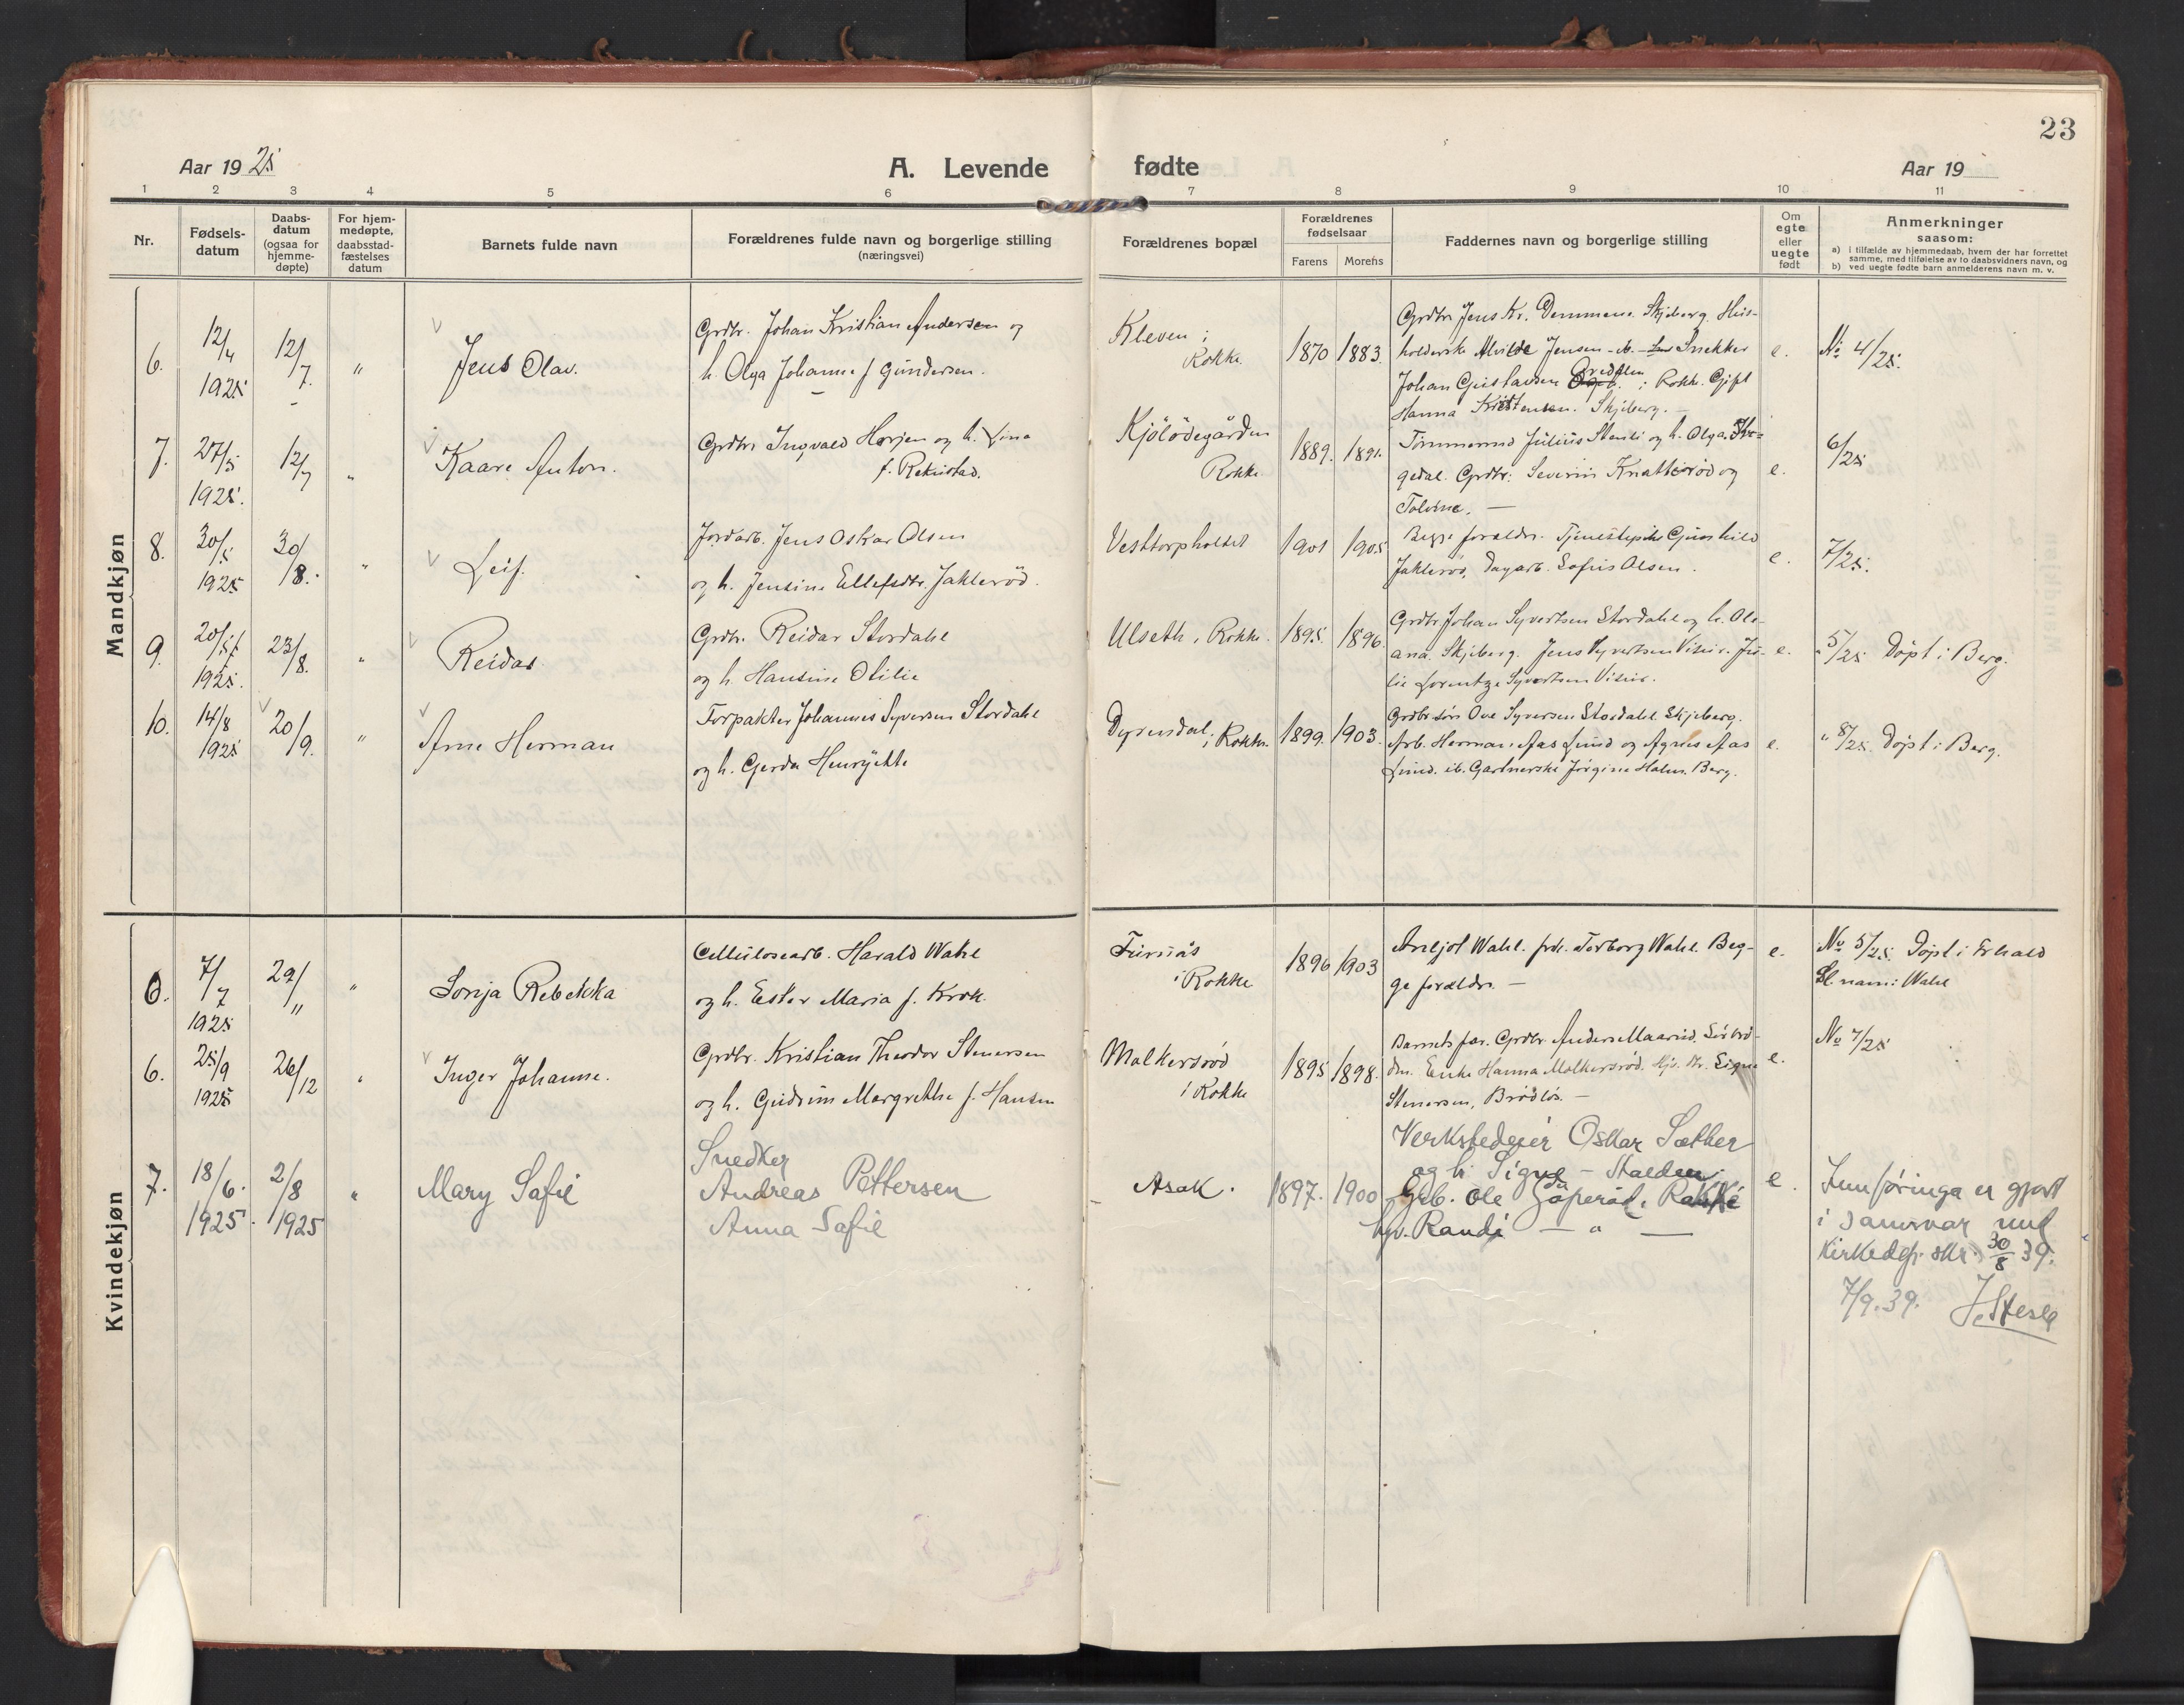 23
Aar 1925
A. Levende fødte
Aar 19
1 2 3 4 5 6 7 8 9 10 11
Nr.
Fødsels-
datum
Daabs-
datum
(ogsaa for
hjemme-
døpte)
For hjem-
medøpte,
daabsstad-
fæstelses
datum
Barnets fulde navn
Forældrenes fulde navn og borgerlige stilling
(næringsvei)
Forældrenes bopæl
Forældrenes
fødselsaar
Farens Morens
Faddernes navn og borgerlige stilling
Om
egte
eller
uegte
født
Anmerkninger
saasom:
a) i tilfælde av hjemmedaab, hvem der har forrettet
samme, med tilføielse av to daabsvidners navn, og
b) ved uegte fødte barn anmelderens navn m. v.
Mandkjøn
6.
12/4
1925
12/7.
"
Jens Olav.
Grdbr. Johan Kristian Andersen og
h. Olga Johanne f Gundersen.
Kleven i
Rokke.
1870 1883.
Grdbr. Jens Kr. Demmene. Skjeberg. Hus-
holderske Alvilde Jensen - ib. - Snekker
Johan Gustavsen i Rokke. Gift
Hanna Kristensen. Skjeberg. -
e.
No 4/25.
7.
27/5
1925.
12/7
"
Kaare Anton.
Grdbr. Ingvald Horjen og h. Lina
f. Rekustad.
Kjølødegården
Rokke.
1889. 1891.
Tømmermd Julius Stensli og h. Olga.
gedal. Grdbr. Severin Knatterød og
Tolvine. -
e.
6/25
8.
30/5
1925
30/8.
"
Leif.
Jordarb. Jens Oskar Olsen
og h. Jensine Ellefsdtr. Jaklerød.
Vesttorpholtet
1901 1905
Begge foreldr. Tjenestepike Gunhild
Jaklerød, Dagarb. Sofus Olsen.
e.
7/25.
9.
20/5
1925.
23/8.
"
Reidar
Grdbr. Reidar Stordahl
og h. Hansine Otilie
Ulseth i Rokke.
1895. 1896.
Grdbr Johan Syvertsen Stordahl og h. Ole-
ana. Skjeberg. Jens Syvertsen Visur. Ju-
lie Lorentze Syvertsen Visur.
e.
" 5/25 Døpt i Berg.
10.
14/8
1925
20/9.
"
Arne Herman
Forpakter Johannes Syversen Stordahl
og h. Gerda Henrijette
Dyrendal i Rokke.
1899. 1903.
Grdbr. søn Ove Syversen Stordahl Skjeberg.
Arb. Herman Aas Lund og Agnes Aas
Lund. ib. Gartnerske Jørgine Holm. Berg.
e.
" 8/25. Døpt i Berg.
Kvindekjøn
7/7
1925
29/11
"
Sonja Rebekka
Cellulosearb. Harald Wahl
og h. Ester Maria f. Krok.
Furuås
i Rokke
1896 1903
Anljot Wahl. frk. Torborg Wahl. Beg-
ge foreldr. -
e.
No 5/25. Døpt i
Sl. navn: Wahl
6.
25/9
1925
26/12
"
Inger Johanne.
Grdbr. Kristian Theodor Stenersen
og h. Gudrun Margrethe f. Hansen
Molkersrød
i Rokke
1895 1898.
Barnets far. Grdbr. Anders
Enke Hanna Molkersrød. Signe
Stenersen, Brødløs. -
e.
No 7/25
7.
18/6.
1925.
2/8
1925
"
Mary Safie
Snedker
Andreas Pettersen
Anna Safie
Asak.
1897. 1900
Verkstedeier Oskar Sæther
og h. Signe - Halden.
Grb. Ole i Rokke
hv. Randi - " -
e.
Innføringa er gjort
i samsvar med
kirkedep. skr. 30/8 39.
7/9.39.